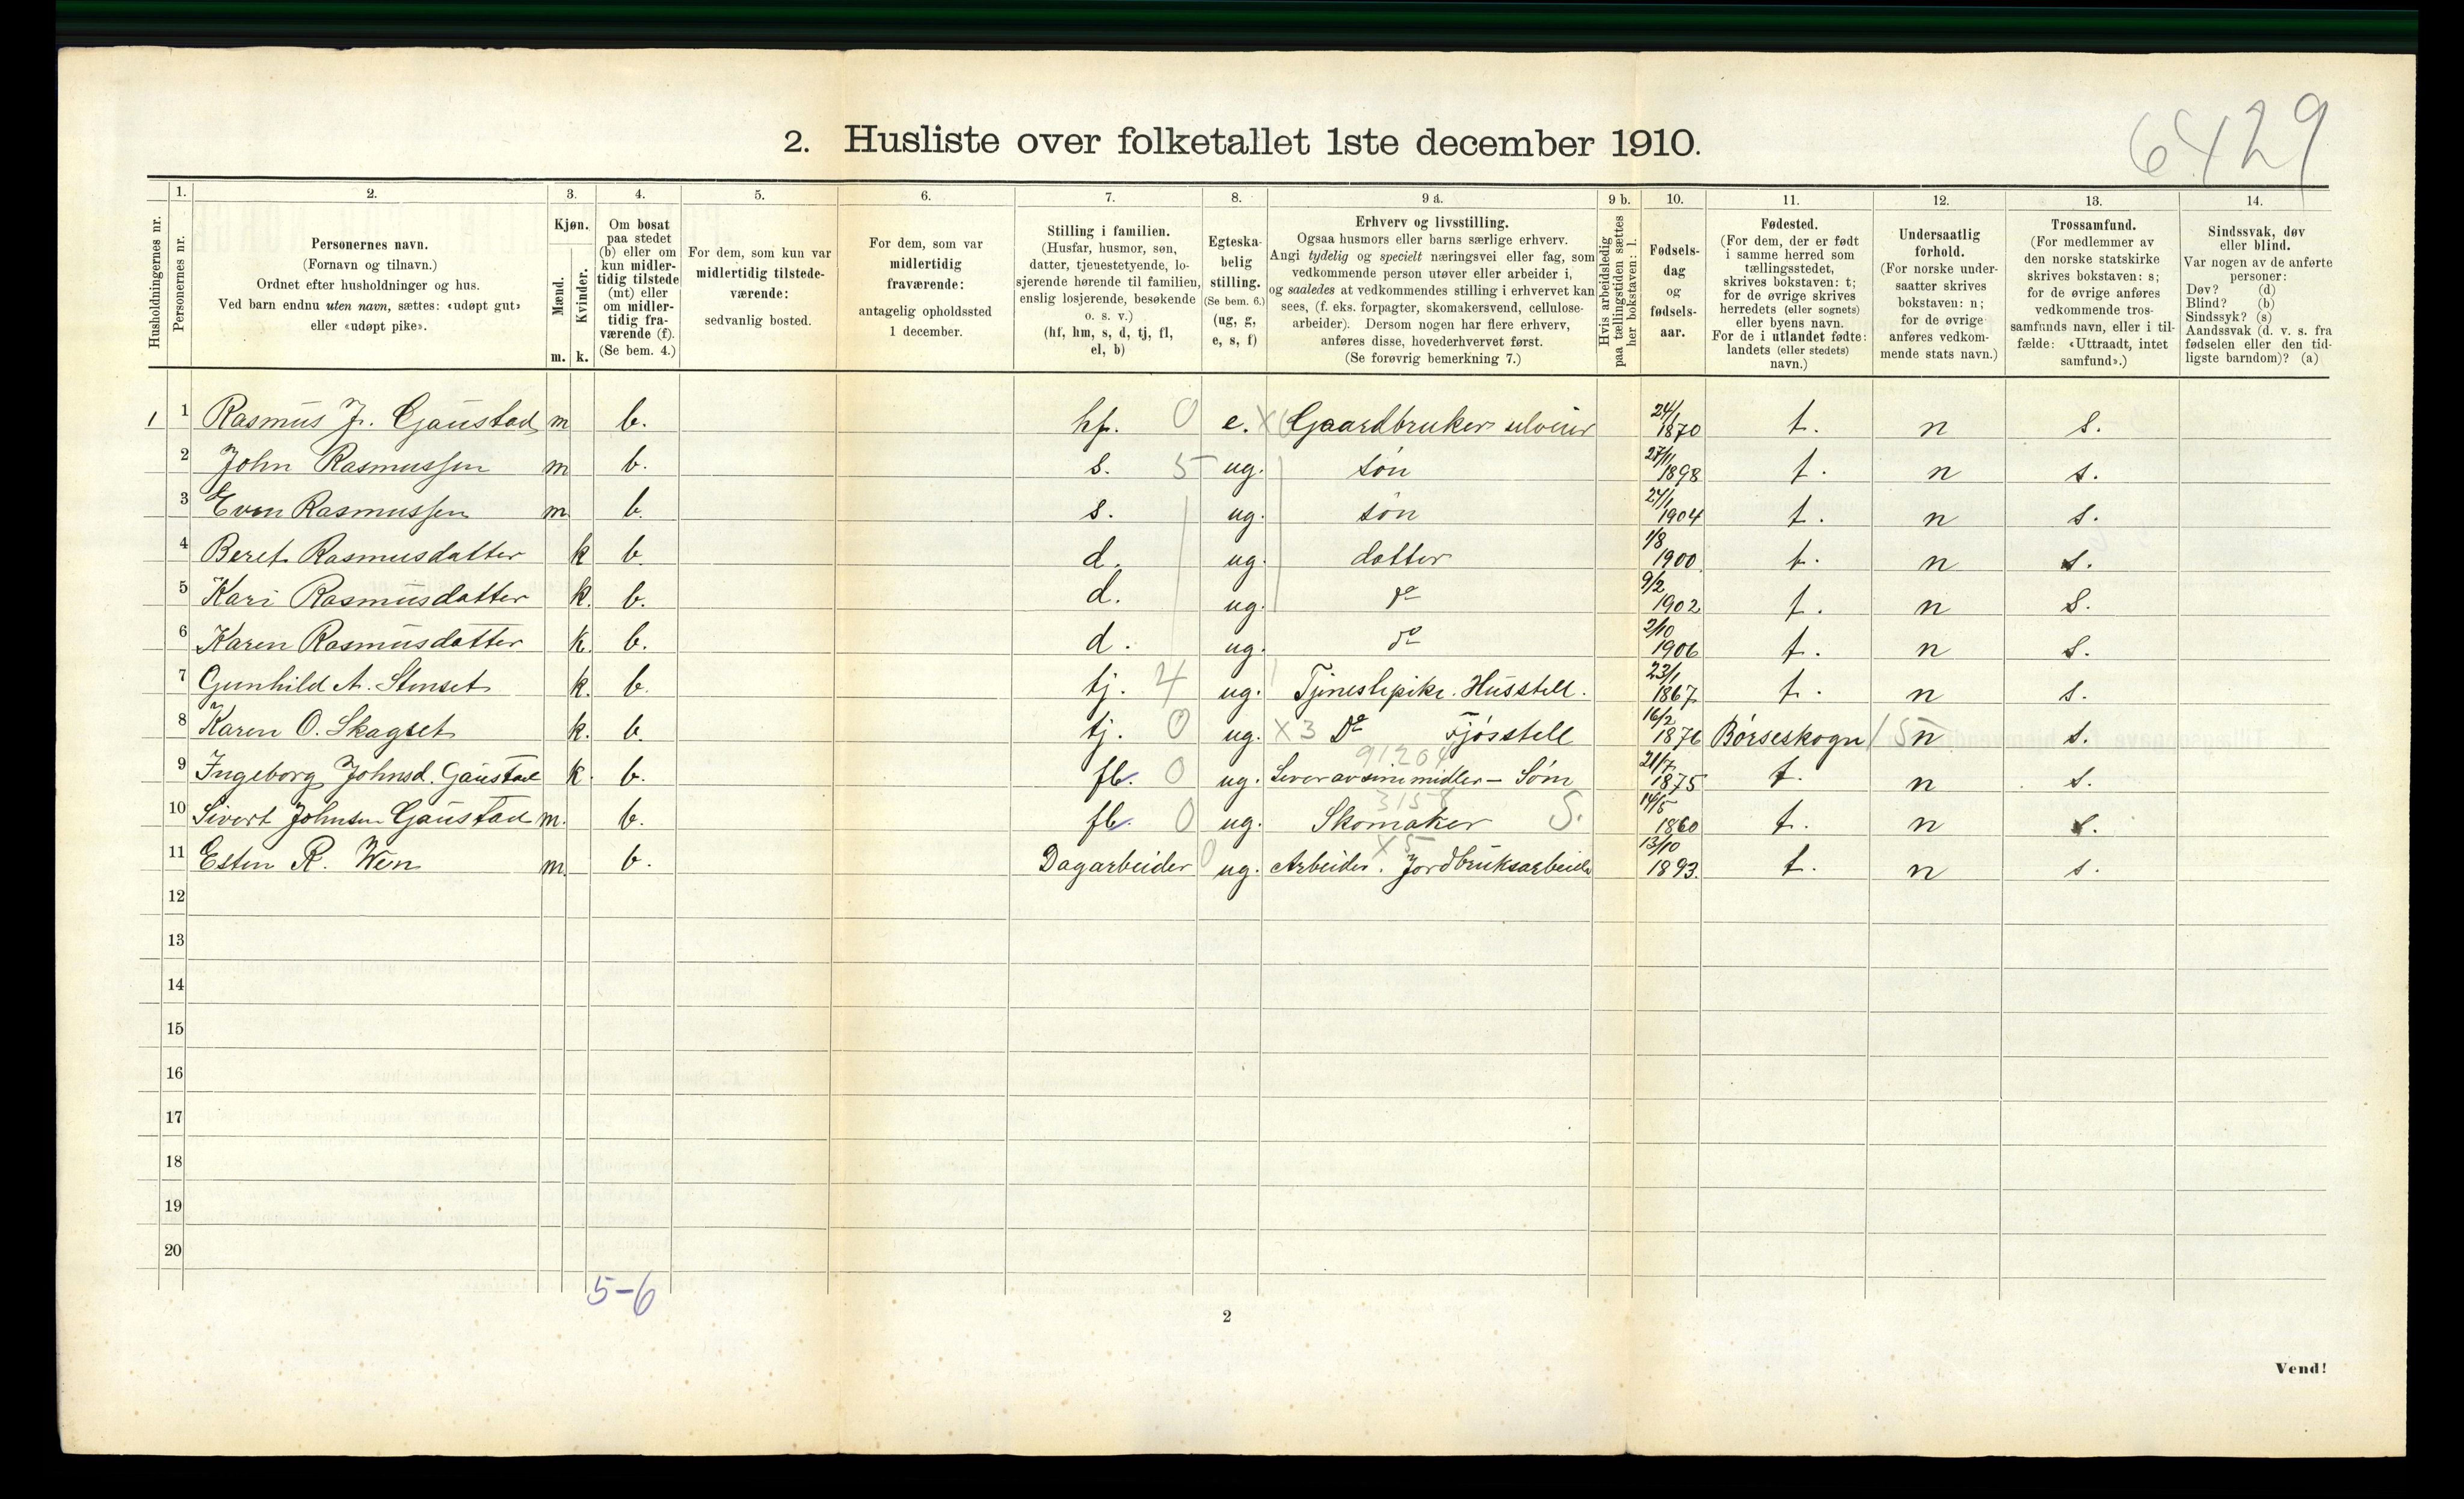 6429
2. Husliste over folketallet 1ste december 1910.
Husholdningernes nr.
1. Personernes nr.
2. Personernes navn. (Fornavn og tilnavn.) Ordnet efter husholdninger og hus. Ved barn endnu uten navn, sættes: «udøpt gut» eller «udøpt pike».
3. Kjøn. Mænd. m. Kvinder. k.
4. Om bosat paa stedet (b) eller om kun midlertidig tilstede (mt) eller om midlertidig fraværende (f). (Se bem. 4.)
5. For dem, som kun var midlertidig tilstedeværende: sedvanlig bosted.
6. For dem, som var midlertidig fraværende: antagelig opholdssted 1 december.
7. Stilling i familien. (Husfar, husmor, søn, datter, tjenestetyende, losjerende hørende til familien, enslig losjerende, besøkende o. s. v.) (hf, hm, s, d, tj, fl, el, b)
8. Egteskabelig stilling. (Se bem. 6.) (ug, g, e, s, f)
9 a. Erhverv og livsstilling. Ogsaa husmors eller barns særlige erhverv. Angi tydelig og specielt næringsvei eller fag, som vedkommende person utøver eller arbeider i, og saaledes at vedkommendes stilling i erhvervet kan sees, (f. eks. forpagter, skomakersvend, cellulosearbeider). Dersom nogen har flere erhverv, anføres disse, hovederhvervet først. (Se forøvrig bemerkning 7.)
9 b. Hvis arbeidsledig paa tællingstiden sættes her bokstaven: l.
10. Fødselsdag og fødselsaar.
11. Fødested. (For dem, der er født i samme herred som tællingsstedet, skrives bokstaven: t; for de øvrige skrives herredets (eller sognets) eller byens navn. For de i utlandet fødte: landets (eller stedets) navn.)
12. Undersaatlig forhold. (For norske undersaatter skrives bokstaven: n; for de øvrige anføres vedkommende stats navn.)
13. Trossamfund. (For medlemmer av den norske statskirke skrives bokstaven: s; for de øvrige anføres vedkommende trossamfunds navn, eller i tilfælde: «Uttraadt, intet samfund».)
14. Sindssvak, døv eller blind. Var nogen av de anførte personer: Døv? (d) Blind? (b) Sindssyk? (s) Aandssvak (d. v. s. fra fødselen eller den tidligste barndom)? (a)
1 1 Rasmus J. Gaustad m b. hf. 0 e. Gaardbruker selveier 24/1 1870 t. n s.
2 John Rasmussen m b. s. 5 ug. søn 27/11 1898 t. n s.
3 Even Rasmussen m b. s. ug. søn 24/1 1904 t. n s.
4 Beret Rasmusdatter k b. d. ug. datter 1/8 1900 t. n s.
5 Kari Rasmusdatter k. b. d. ug. do 9/2 1902 t. n s.
6 Karen Rasmusdatter k. b. d. ug. do 2/10 1906 t. n s.
7 Gunhild A. Stenset k. b. tj. 4 ug. Tjenestepike. Husstell. 23/1 1867 t. n s.
8 Karen O. Skagset k. b. tj. 0 ug. X3 Do Fjøsstell 16/2 1876 Børseskogn n s.
91204
9 Ingeborg Johnsd. Gaustad k. b. fl. 0 ug. Lever av sine midler - Søm 21/7 1875 t. n s.
10 Sivert Johnsen Gaustad m. b. fl. 0 ug. Skomaker S. 14/5 1860 t. n s.
X5
11 Esten R. Wen m. b. Dagarbeider 0 ug. Arbeider. Jordbruksarbeide 13/10 1893. t. n s.
12
13
14
15
16
17
18
19
20
5-6
2
Vend!